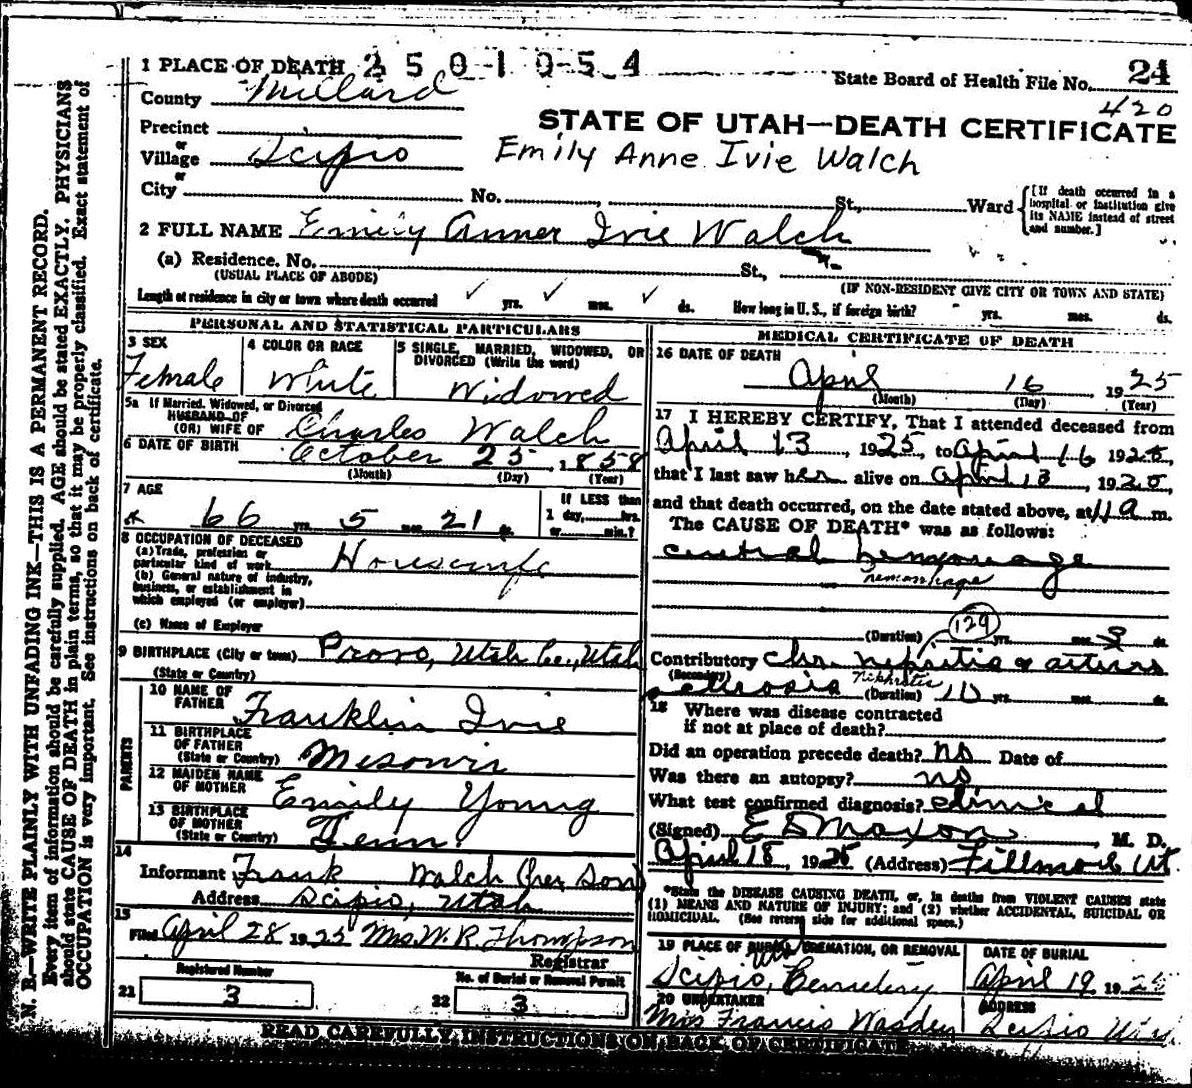 1 PLACE OF DEATH 2501054
State Board of Health File No. 24
420
County Millard
STATE OF UTAH—DEATH CERTIFICATE
Precinct
or
Village Scipio
Emily Anne Ivie Walch
or
City No. St., Ward
[If death occurred in a hospital or institution give its NAME instead of street and number.]
2 FULL NAME Emily Anner Ivie Walch
(a) Residence. No. St.,
(USUAL PLACE OF ABODE) (IF NON-RESIDENT GIVE CITY OR TOWN AND STATE)
Length of residence in city or town where death occurred ✓ yrs. ✓ mos. ✓ ds. How long in U. S., if foreign birth? yrs. mos. ds.
PERSONAL AND STATISTICAL PARTICULARS
3 SEX
Female
4 COLOR OR RACE
White
5 SINGLE, MARRIED, WIDOWED, OR
DIVORCED (Write the word)
Widowed
5a If Married, Widowed, or Divorced
HUSBAND OF
(OR) WIFE OF Charles Walch
6 DATE OF BIRTH October 25, 1858
(Month) (Day) (Year)
7 AGE
66 yrs. 5 mos. 21 ds.
If LESS than
1 day, hrs.
or min.?
8 OCCUPATION OF DECEASED
(a) Trade, profession or
particular kind of work Housewife
(b) General nature of industry,
business, or establishment in
which employed (or employer)
(c) Name of Employer
9 BIRTHPLACE (City or town) Provo, Utah Co., Utah
(State or Country)
PARENTS
10 NAME OF
FATHER Franklin Ivie
11 BIRTHPLACE
OF FATHER
(State or Country) Misouri
12 MAIDEN NAME
OF MOTHER Emily Young
13 BIRTHPLACE
OF MOTHER
(State or Country) Tenn.
14
Informant Frank Walch (her Son)
Address Scipio, Utah
15
Filed April 28 1925 Mrs W. R. Thompson
Registrar
Registered Number
21 3
No. of Burial or Removal Permit
22 3
MEDICAL CERTIFICATE OF DEATH
16 DATE OF DEATH
April 16 1925
(Month) (Day) (Year)
17 I HEREBY CERTIFY, That I attended deceased from
April 13, 1925, to April 16 1925,
that I last saw her alive on April 13, 1925,
and that death occurred, on the date stated above, at 11 a m.
The CAUSE OF DEATH* was as follows:
hemorrhage
129
(Duration) yrs. mos. ds.
Contributory Chr. nephritis & arterio
(Secondary) sclerosis Nephritis (Duration) 10 yrs. mos. ds.
18 Where was disease contracted
if not at place of death?
Did an operation precede death? no Date of
Was there an autopsy? no
What test confirmed diagnosis? clinical
(Signed) E D Maxon, M. D.
April 18, 1925 (Address) Fillmore Ut.
*State the DISEASE CAUSING DEATH, or, in deaths from VIOLENT CAUSES state
(1) MEANS AND NATURE OF INJURY; and (2) whether ACCIDENTAL, SUICIDAL OR
HOMICIDAL. (See reverse side for additional space.)
19 PLACE OF BURIAL, CREMATION, OR REMOVAL
Scipio, Cemetery
DATE OF BURIAL
April 19, 1925
20 UNDERTAKER
Mrs Francis Wasden
ADDRESS
Scipio Utah
READ CAREFULLY, INSTRUCTIONS ON BACK OF CERTIFICATE
N. B.—WRITE PLAINLY WITH UNFADING INK—THIS IS A PERMANENT RECORD.
Every item of information should be carefully supplied. AGE should be stated EXACTLY. PHYSICIANS
should state CAUSE OF DEATH in plain terms, so that it may be properly classified. Exact statement of
OCCUPATION is very important. See instructions on back of certificate.